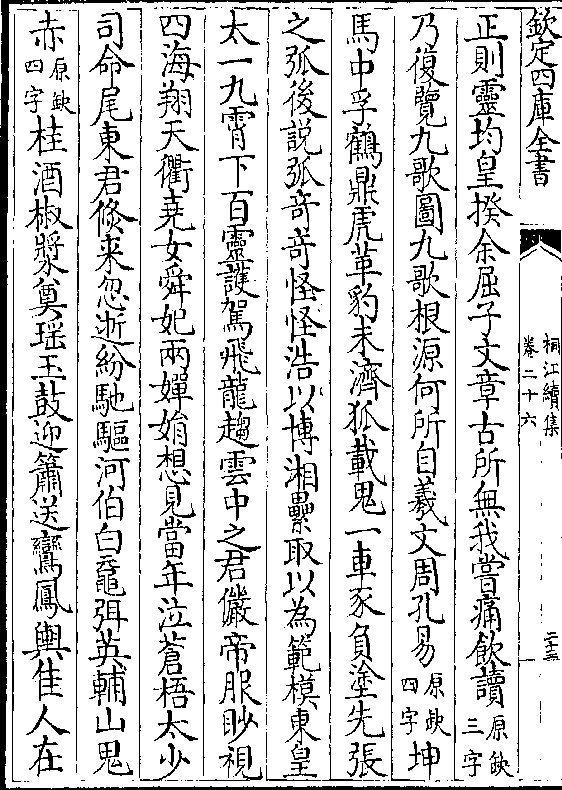 欽定四庫全書
桐江續集
卷二十六
二十三
正則靈均皇揆余屈子文章古所無我嘗痛飲讀原缺三字
乃復覽九歌圖九歌根源何所自羲文周孔易原缺四字坤
馬中孚鶴鼎虎革豹未濟狐載鬼一車豕負塗先張
之弧後説弧竒竒怪怪浩以博湘纍取以為範模東皇
太一九霄下百靈護駕飛龍趨雲中之君儼帝服眇視
四海翔天衢堯女舜妃兩嬋娟想見當年泣蒼梧太少
司命尾東君倐来忽逝紛馳驅河伯白黿弭英輔山鬼
赤原缺四字桂酒椒漿奠瑶玉鼓迎簫送鸞鳳輿佳人在